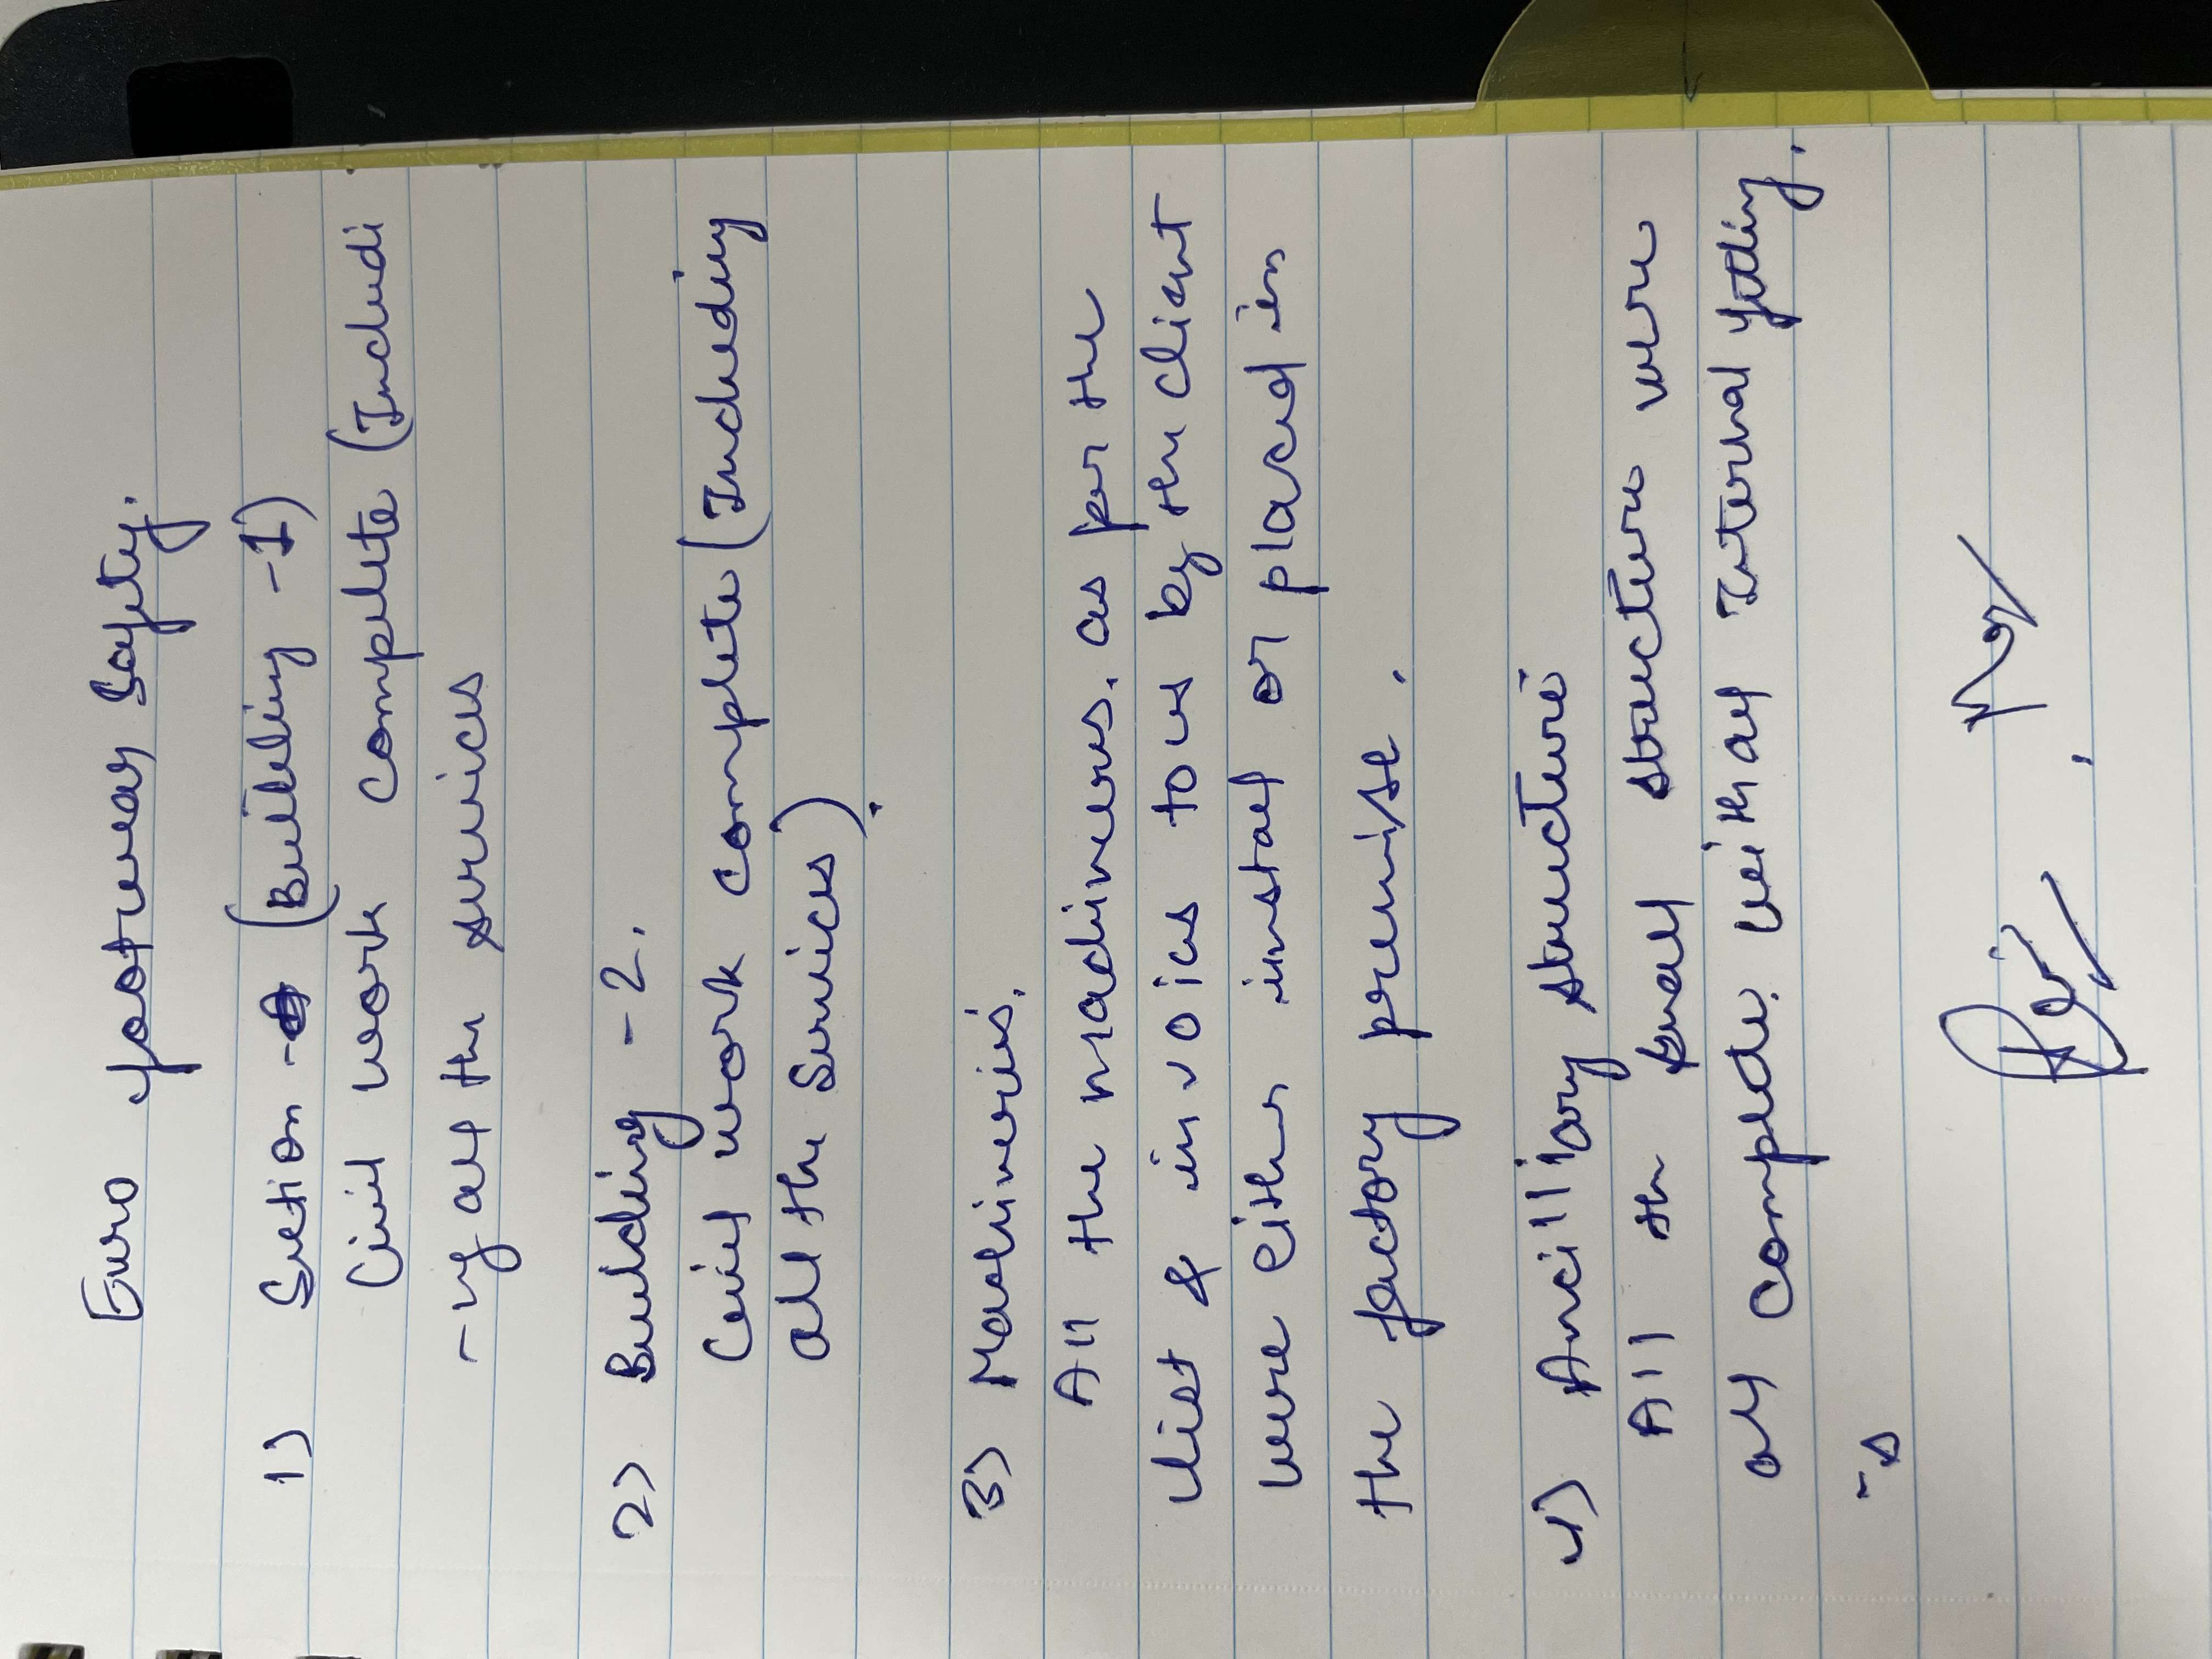 Euro footwear Safety.
1) Section - (Building -1)
Civil work complete (Includi
-ng all the services
2) Building -2.
Civil work complete (Including
all the Services).
3) Machineries.
All the machineries. as per the
list & invoices to us by the client
were either install or placed in
the factory premise.
4) Ancilliary structure
All the structure were
all complete with all Internal fitting.
-s